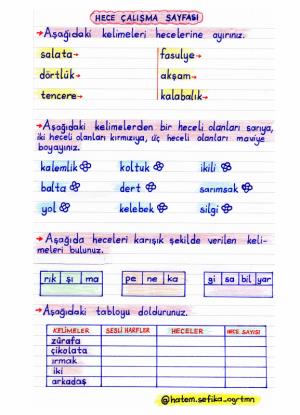 HECE ÇALIŞMA SAYFASI
→Aşağıdaki kelimeleri hecelerine ayırınız.
salata→ fasulye→
dörtlük→ akşam→
tencere→ kalabalık→
→Aşağıdaki kelimelerden bir heceli olanları sarıya,
iki heceli olanları kırmızıya, üç heceli olanları maviye
boyayınız.
kalemlik koltuk ikili
balta dert sarımsak
yol kelebek silgi
→Aşağıda heceleri karışık şekilde verilen keli-
meleri bulunuz.
rık şı ma pe ne ka gi sa bil yar
→Aşağıdaki tabloyu doldurunuz.
KELİMELER SESLİ HARFLER HECELER HECE SAYISI
zürafa
çikolata
ırmak
iki
arkadaş
@hatem.sefika_ogrtmn